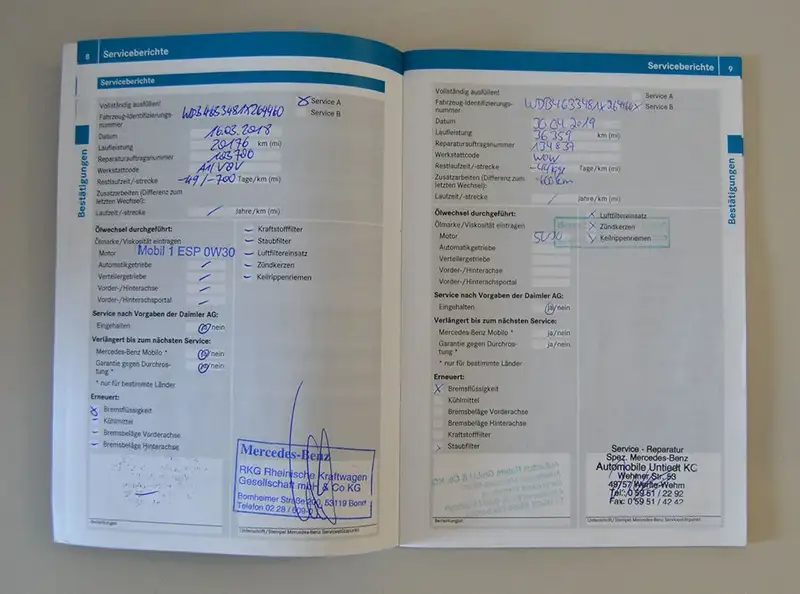 8 Serviceberichte
Serviceberichte
Vollständig ausfüllen!
Service A
Service B
Fahrzeug-Identifizierungs-
nummer
WDB4633481X264460
Datum
16.03.2018
Laufleistung
20176 km (mi)
Reparaturauftragsnummer
103700
Werkstattcode
Restlaufzeit/-strecke
-49/-700 Tage/km (mi)
Zusatzarbeiten (Differenz zum
letzten Wechsel):
Laufzeit/-strecke Jahre/km (mi)
Bestätigungen
Ölwechsel durchgeführt:
Ölmarke/Viskosität eintragen
Motor Mobil 1 ESP 0W30
Automatikgetriebe
Verteilergetriebe
Vorder-/Hinterachse
Vorder-/Hinterachsportal
Kraftstofffilter
Staubfilter
Luftfiltereinsatz
Zündkerzen
Keilrippenriemen
Service nach Vorgaben der Daimler AG:
Eingehalten ja/nein
Verlängert bis zum nächsten Service:
Mercedes-Benz Mobilo * ja/nein
Garantie gegen Durchros-
tung * ja/nein
* nur für bestimmte Länder
Erneuert:
Bremsflüssigkeit
Kühlmittel
Bremsbeläge Vorderachse
Bremsbeläge Hinterachse
Mercedes-Benz
RKG Rheinische Kraftwagen
Gesellschaft mbH & Co KG
Bornheimer Straße 200, 53119 Bonn
Telefon 02 28 / 609-0
Bemerkungen
Unterschrift/Stempel Mercedes-Benz Servicestützpunkt
Serviceberichte 9
Vollständig ausfüllen!
Service A
Service B
Fahrzeug-Identifizierungs-
nummer
WDB4633481X264460
Datum
30.04.2019
Laufleistung
36359 km (mi)
Reparaturauftragsnummer
134837
Werkstattcode
Restlaufzeit/-strecke
Tage/km (mi)
Zusatzarbeiten (Differenz zum
letzten Wechsel):
Laufzeit/-strecke Jahre/km (mi)
Bestätigungen
Ölwechsel durchgeführt:
Ölmarke/Viskosität eintragen
Motor
Automatikgetriebe
Verteilergetriebe
Vorder-/Hinterachse
Vorder-/Hinterachsportal
Luftfiltereinsatz
Zündkerzen
Keilrippenriemen
Service nach Vorgaben der Daimler AG:
Eingehalten ja/nein
Verlängert bis zum nächsten Service:
Mercedes-Benz Mobilo * ja/nein
Garantie gegen Durchros-
tung * ja/nein
* nur für bestimmte Länder
Erneuert:
Bremsflüssigkeit
Kühlmittel
Bremsbeläge Vorderachse
Bremsbeläge Hinterachse
Kraftstofffilter
Staubfilter
Service - Reparatur
Spez. Mercedes-Benz
Automobile Untiedt KG
Wehmer Str. 53
49757 Werlte-Wehm
Tel.: 0 59 51 / 22 92
Fax: 0 59 51 / 42 42
Bemerkungen
Unterschrift/Stempel Mercedes-Benz Servicestützpunkt